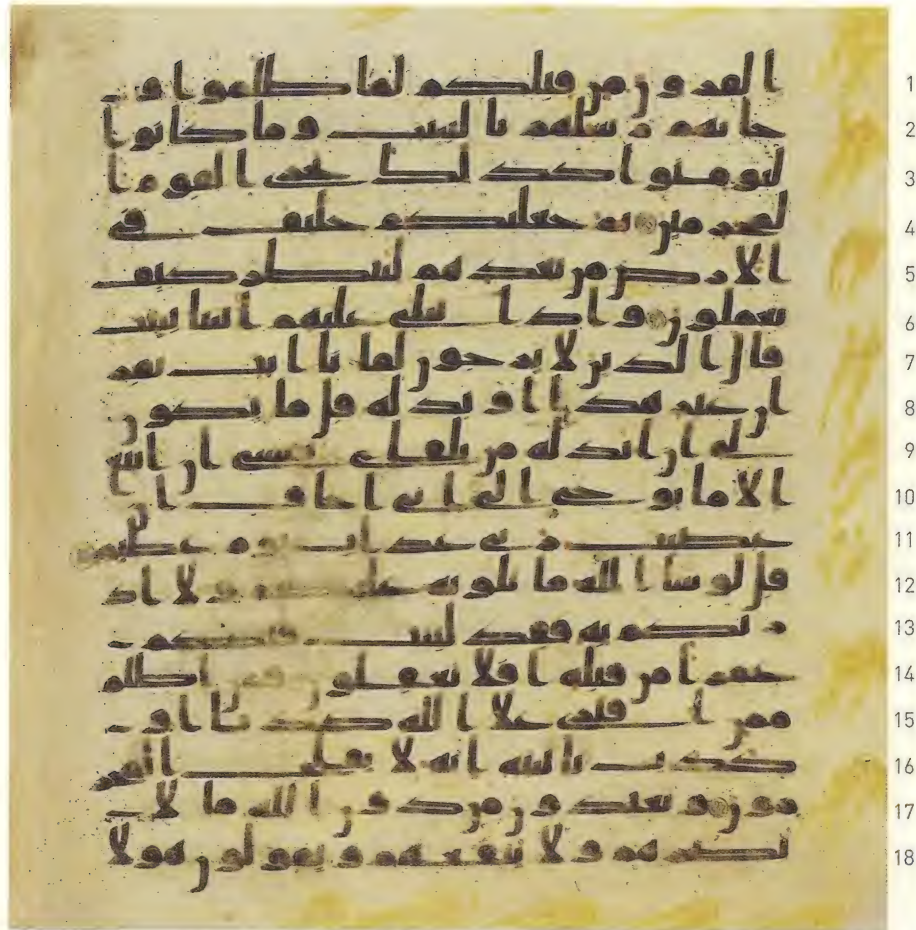 1 القرون من قبلكم لما ظلموا و
2 جاتهم رسلهم بالبينت وما كانوا
3 ليومنوا كذلك نجزي القوم ا
4 لمجرمين ثم جعلنكم خليف في
5 الارض من بعدهم لننظر كيف
6 تعملون واذا تتلى عليهم اياتنا بينت
7 قال الذين لا يرجون لقانا ايت بقر
8 ان غير هذا او بدله قل ما يكون
9 لي ان ابدله من تلقاي نفسي ان اتبع
10 الا ما يوحى الي اني اخاف ان
11 عصيت ربي عذاب يوم عظيم
12 قل لو شا الله ما تلوته عليكم ولا اد
13 ريكم به فقد لبثت فيكم
14 عمرا من قبله افلا تعقلون فمن اظلم
15 ممن افترى على الله كذبا او
16 كذب بايته انه لا يفلح المجر
17 مون ويعبدون من دون الله ما لا
18 يضرهم ولا ينفعهم ويقولون هولا